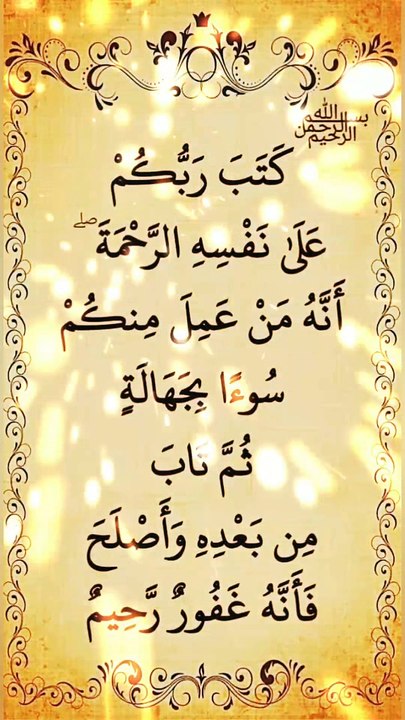 بسم الله الرحمن الرحيم
كَتَبَ رَبُّكُمْ
عَلَىٰ نَفْسِهِ الرَّحْمَةَ ۖ
أَنَّهُ مَنْ عَمِلَ مِنكُمْ
سُوءًا بِجَهَالَةٍ
ثُمَّ تَابَ
مِن بَعْدِهِ وَأَصْلَحَ
فَأَنَّهُ غَفُورٌ رَّحِيمٌ